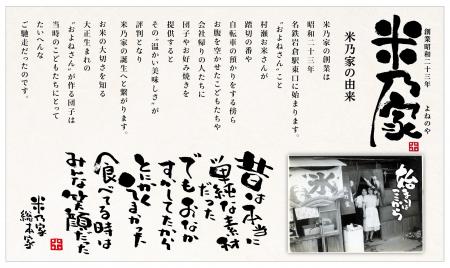 創業昭和二十三年
よねのや
米乃家
米
米乃家の由来
米乃家の創業は
昭和二十三年
名鉄岩倉駅東口に始まります。
“およねさん”こと
村瀬お米さんが
踏切の番や
自転車の預かりをする傍ら
お腹を空かせたこどもたちや
会社帰りの人たちに
団子やお好み焼きを
提供すると
その“温かい美味しさ”が
評判となり
米乃家の誕生へと繋がります。
お米の大切さを知る
大正生まれの
“およねさん”が作る団子は
当時のこどもたちにとって
たいへんな
ご馳走だったのです。
昔は本当に
単純な素材
だった
でもおなか
すかしてたから
とにかく
うまかった
食べてる時は
みんな笑顔だった
米乃家
総本家
米
始まりは
ここから
氷